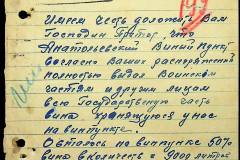 Имею честь доложить Вам
Господин Пртог, что
Анатольевский Винный Пункт
согласно Ваших распоряжений
полностью выдал Воинским
частям и другим лицам
всю Государственную часть
вина хранящуюся у нас
на винпункте.
Осталось на винпункте 50%
вина в количестве 9000 литров